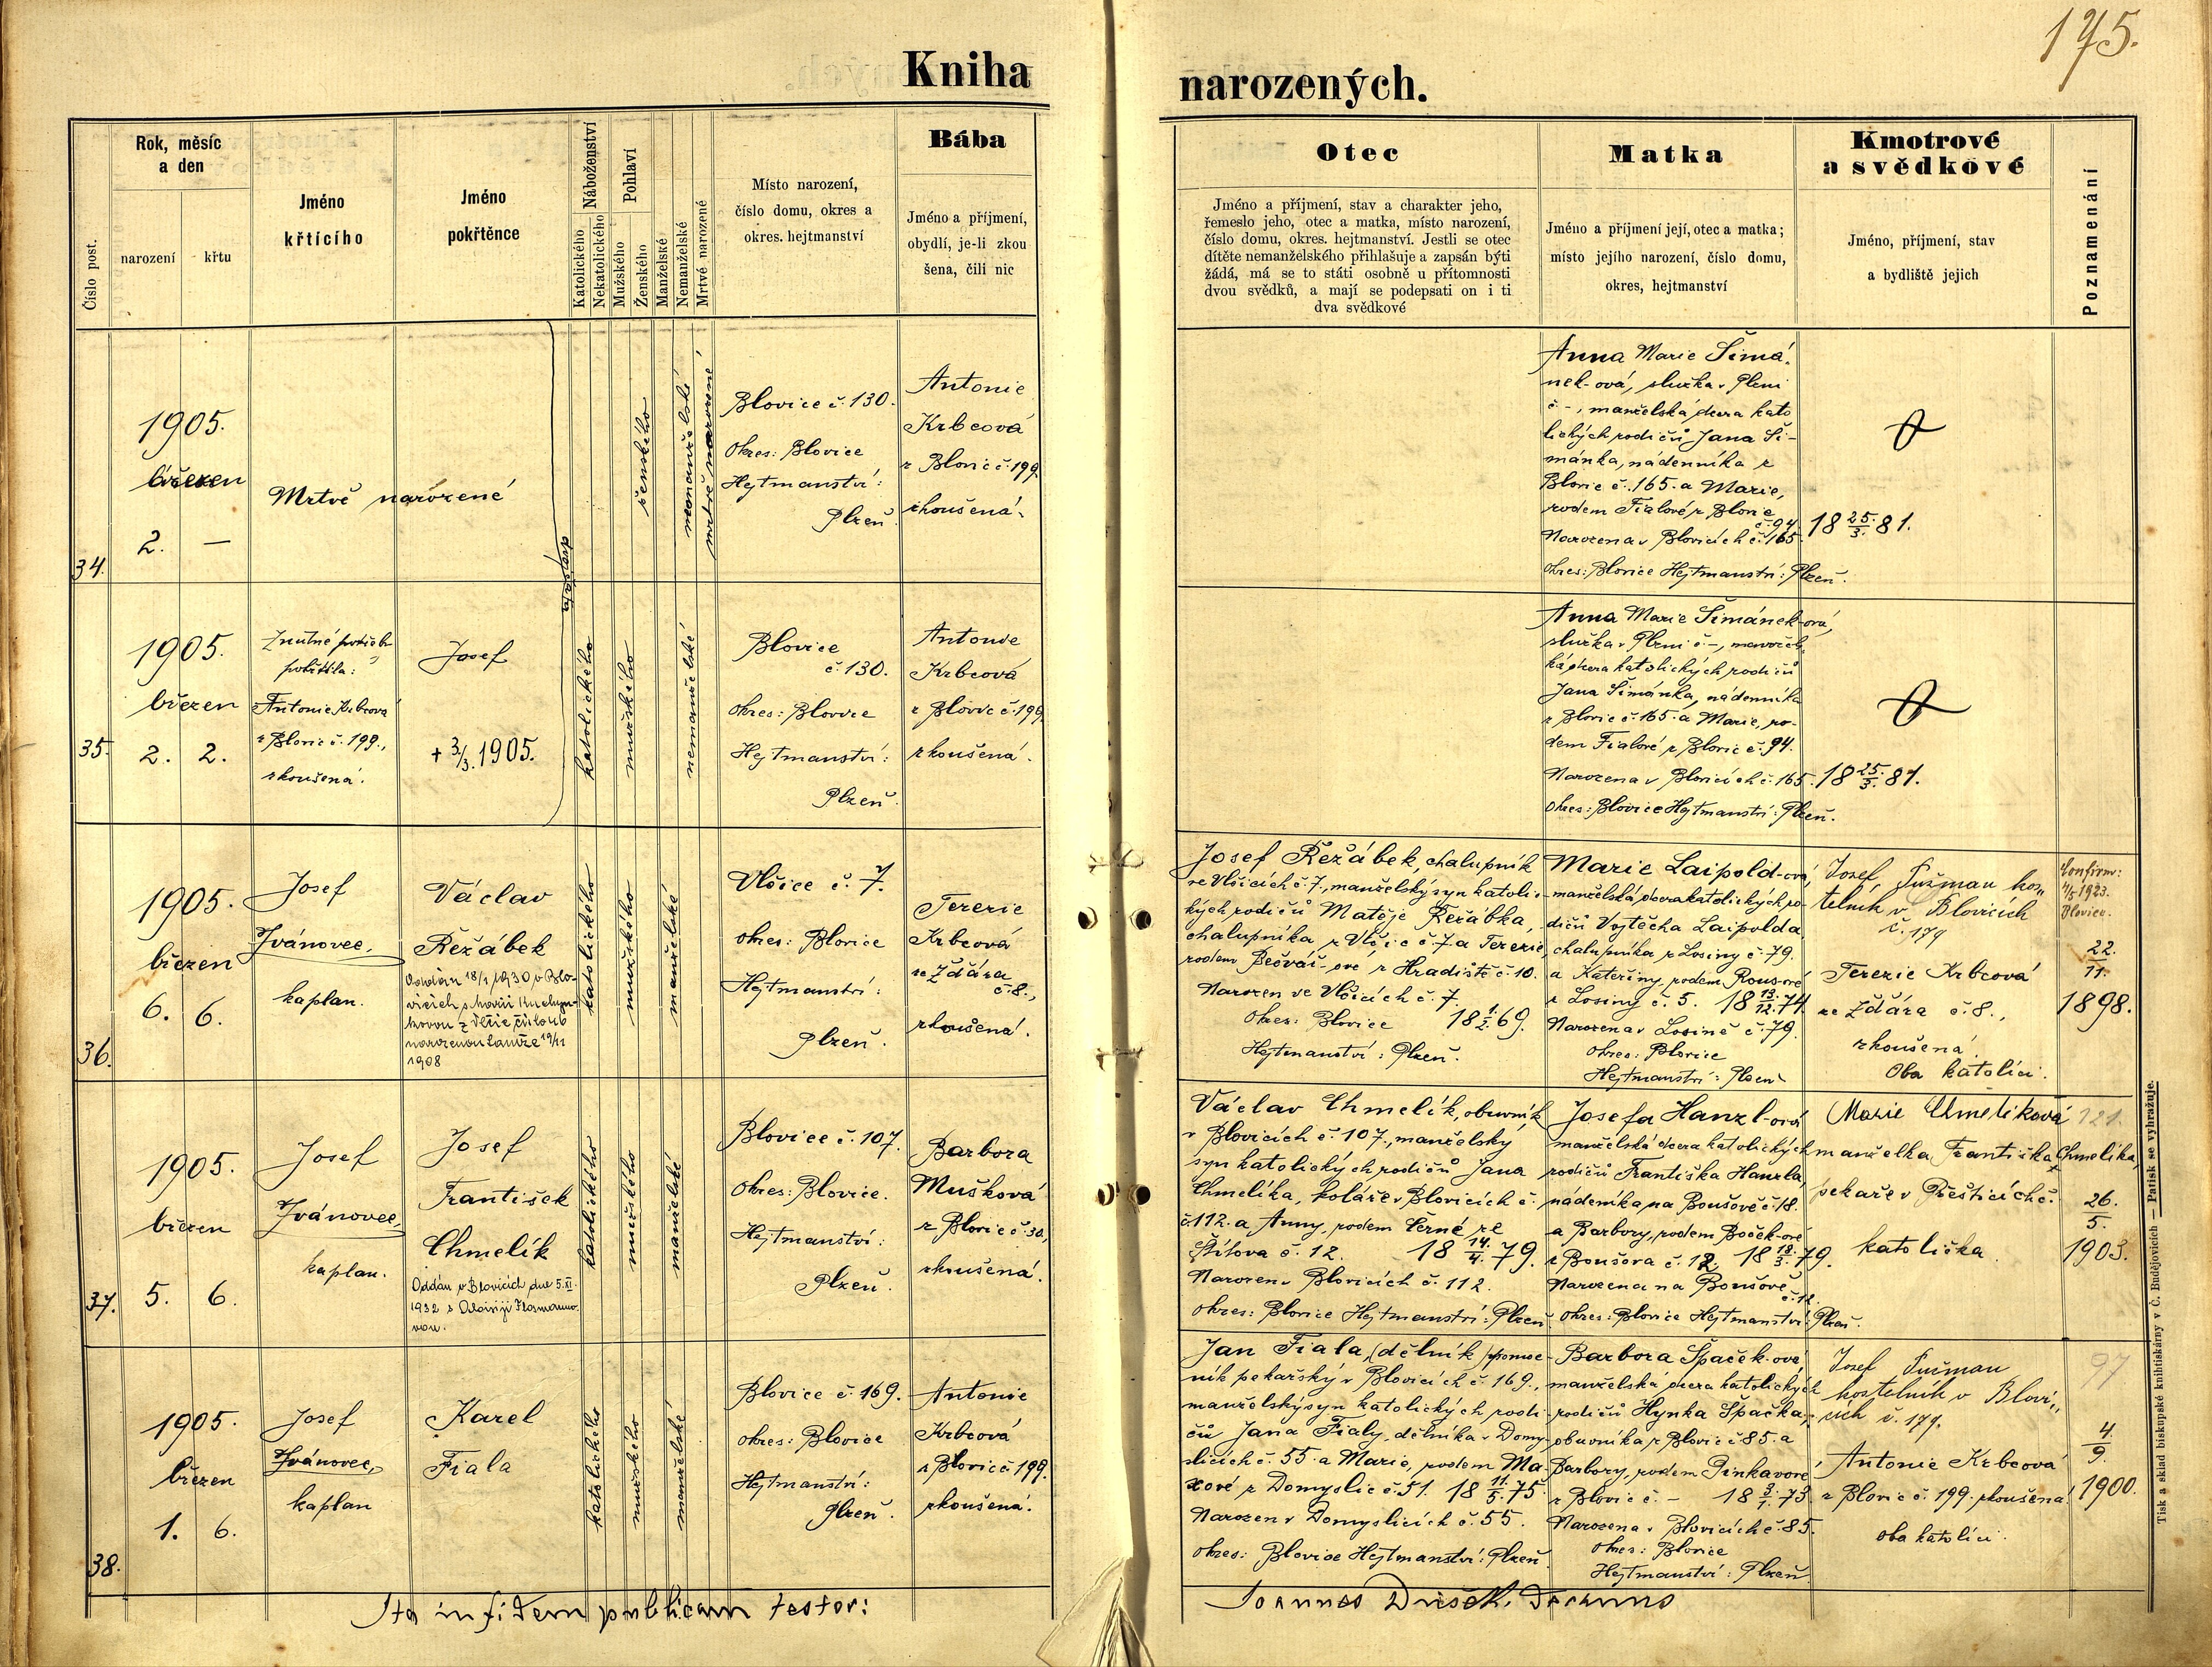 175.
Kniha narozených.
Číslo post.
Rok, měsíc
a den
narození
křtu
Jméno
křtícího
Jméno
pokřtěnce
Náboženství
Katolického
Nekatolického
Pohlaví
Mužského
Ženského
Manželské
Nemanželské
Mrtvě narozené
Místo narození,
číslo domu, okres a
okres. hejtmanství
Bába
Jméno a příjmení,
obydlí, je-li zkou
šena, čili nic
Otec
Jméno a příjmení, stav a charakter jeho,
řemeslo jeho, otec a matka, místo narození,
číslo domu, okres. hejtmanství. Jestli se otec
dítěte nemanželského přihlašuje a zapsán býti
žádá, má se to státi osobně u přítomnosti
dvou svědků, a mají se podepsati on i ti
dva svědkové
Matka
Jméno a příjmení její, otec a matka;
místo jejího narození, číslo domu,
okres, hejtmanství
Kmotrové
a svědkové
Jméno, příjmení, stav
a bydliště jejich
Poznamenání
34.
1905.
březen
2. —
Mrtvě narozené
dvojčata
ženského
nemanželské
mrtvě narozené
Blovice č. 130.
Okres: Blovice
Hejtmanství:
Plzeň.
Antonie
Krbcová
z Blovic č. 199.
zkoušená.
Anna Marie Šimá-
nek-ová, služka v Plzni
č. -, manželská dcera kato
lických rodičů Jana Ši-
mánka, nádenníka z
Blovic č. 165. a Marie,
rodem Fialové z Blovic
č. 94.
Narozena v Blovicích č. 165. 18 25./3. 81.
Okres: Blovice Hejtmanství: Plzeň.
35.
1905.
březen
2. 2.
Z nutné potřeby
pokřtila:
Antonie Krbcová
z Blovic č. 199.,
zkoušená.
Josef
+ 3./3. 1905.
katolického
mužského
nemanželské
Blovice
č. 130.
Okres: Blovice
Hejtmanství:
Plzeň.
Antonie
Krbcová
z Blovic č. 199
zkoušená.
Anna Marie Šimánek-ová,
služka v Plzni č. -, manžels-
ká dcera katolických rodičů
Jana Šimánka, nádenníka
z Blovic č. 165. a Marie, ro-
dem Fialové z Blovic č. 94.
Narozena v Blovicích č. 165. 18 25./3. 81.
Okres: Blovice Hejtmanství: Plzeň.
36.
1905.
březen
6. 6.
Josef
Ivánovec,
kaplan.
Václav
Řežábek
Oddán 18/1 1930 v Blo-
vicích s Marií
z Vlčic číslo
narozenou tamže 19/11
1908
katolického
mužského
manželské
Vlčice č. 7.
Okres: Blovice
Hejtmanství:
Plzeň.
Terezie
Krbcová
ze Žďára
č. 8.,
zkoušená.
Josef Řežábek, chalupník
ve Vlčicích č. 7., manželský syn katolic-
kých rodičů Matěje Řežábka,
chalupníka z Vlčic č. 7. a Terezie,
rodem Bečvář-ové z Hradiště č. 10.
Narozen ve Vlčicích č. 7.
Okres: Blovice 18 1./2. 69.
Hejtmanství: Plzeň.
Marie Laipold-ová,
manželská dcera katolických ro-
dičů Vojtěcha Laipolda,
chalupníka z Losiny č. 79.
a Kateřiny, rodem Rous-ové
z Losiny č. 5. 18 13./12. 74.
Narozena v Losině č. 79.
Okres: Blovice
Hejtmanství: Plzeň
Josef Sušman kos-
telník v Blovicích
č. 179
Terezie Krbcová
ze Žďára č. 8.,
zkoušená.
Oba katolíci.
Confirm:
1923.
Blovice.
22.
11.
1898.
37.
1905.
březen
5. 6.
Josef
Ivánovec,
kaplan.
Josef
František
Chmelík
Oddán v Blovicích dne 5.XI.
1932 s Aloisií
katolického
mužského
manželské
Blovice č. 107.
Okres: Blovice.
Hejtmanství:
Plzeň.
Barbora
Mušková
z Blovic č. 30,
zkoušená.
Václav Chmelík, obuvník
v Blovicích č. 107., manželský
syn katolických rodičů Jana
Chmelíka, koláře v Blovicích č.
č. 112. a Anny, rodem Černé ze
Štítova č. 12. 18 14./4. 79.
Narozen v Blovicích č. 112.
Okres: Blovice Hejtmanství: Plzeň
Josefa Hanzl-ová
manželská dcera katolických
rodičů Františka Hanzla,
nádeníka na Boušově č. 18.
a Barbory, rodem Boček-ové
z Boušova č. 12. 18 18./3. 79.
Narozena na Boušově
č. 12.
Okres: Blovice Hejtmanství: Plzeň.
Marie Chmelíková
manželka Františka Chmelíka,
pekaře v Přešticích č.
katolička
121.
26.
5.
1903.
38.
1905.
březen
1. 6.
Josef
Ivánovec,
kaplan
Karel
Fiala
katolického
mužského
manželské
Blovice č. 169.
Okres: Blovice
Hejtmanství:
Plzeň.
Antonie
Krbcová
z Blovic č. 199.
zkoušená.
Jan Fiala, (dělník) pomoc-
ník pekařský v Blovicích č. 169.,
manželský syn katolických rodi-
čů Jana Fialy, dělníka v Domy-
slicích č. 55. a Marie, rodem Ma-
xové z Domyslic č. 51. 18 11./5. 75.
Narozen v Domyslicích č. 55.
Okres: Blovice Hejtmanství: Plzeň
Barbora Špaček-ová,
manželská dcera katolických
rodičů Hynka Špačka,
obuvníka z Blovic č. 85. a
Barbory, rodem Pinkavové
z Blovic č. - 18 3./1. 73.
Narozena v Blovicích č. 85.
Okres: Blovice
Hejtmanství: Plzeň.
Josef Sušman
kostelník v Blovi-
cích č. 179.
Antonie Krbcová
z Blovic č. 199. zkoušená.
oba katolíci.
97
4.
9.
1900.
Ita in fidem publicam testor:
Joannes Dušek, Decanus
Tisk a sklad biskupské knihtiskárny v Č. Budějovicích — Patisk se vyhražuje.